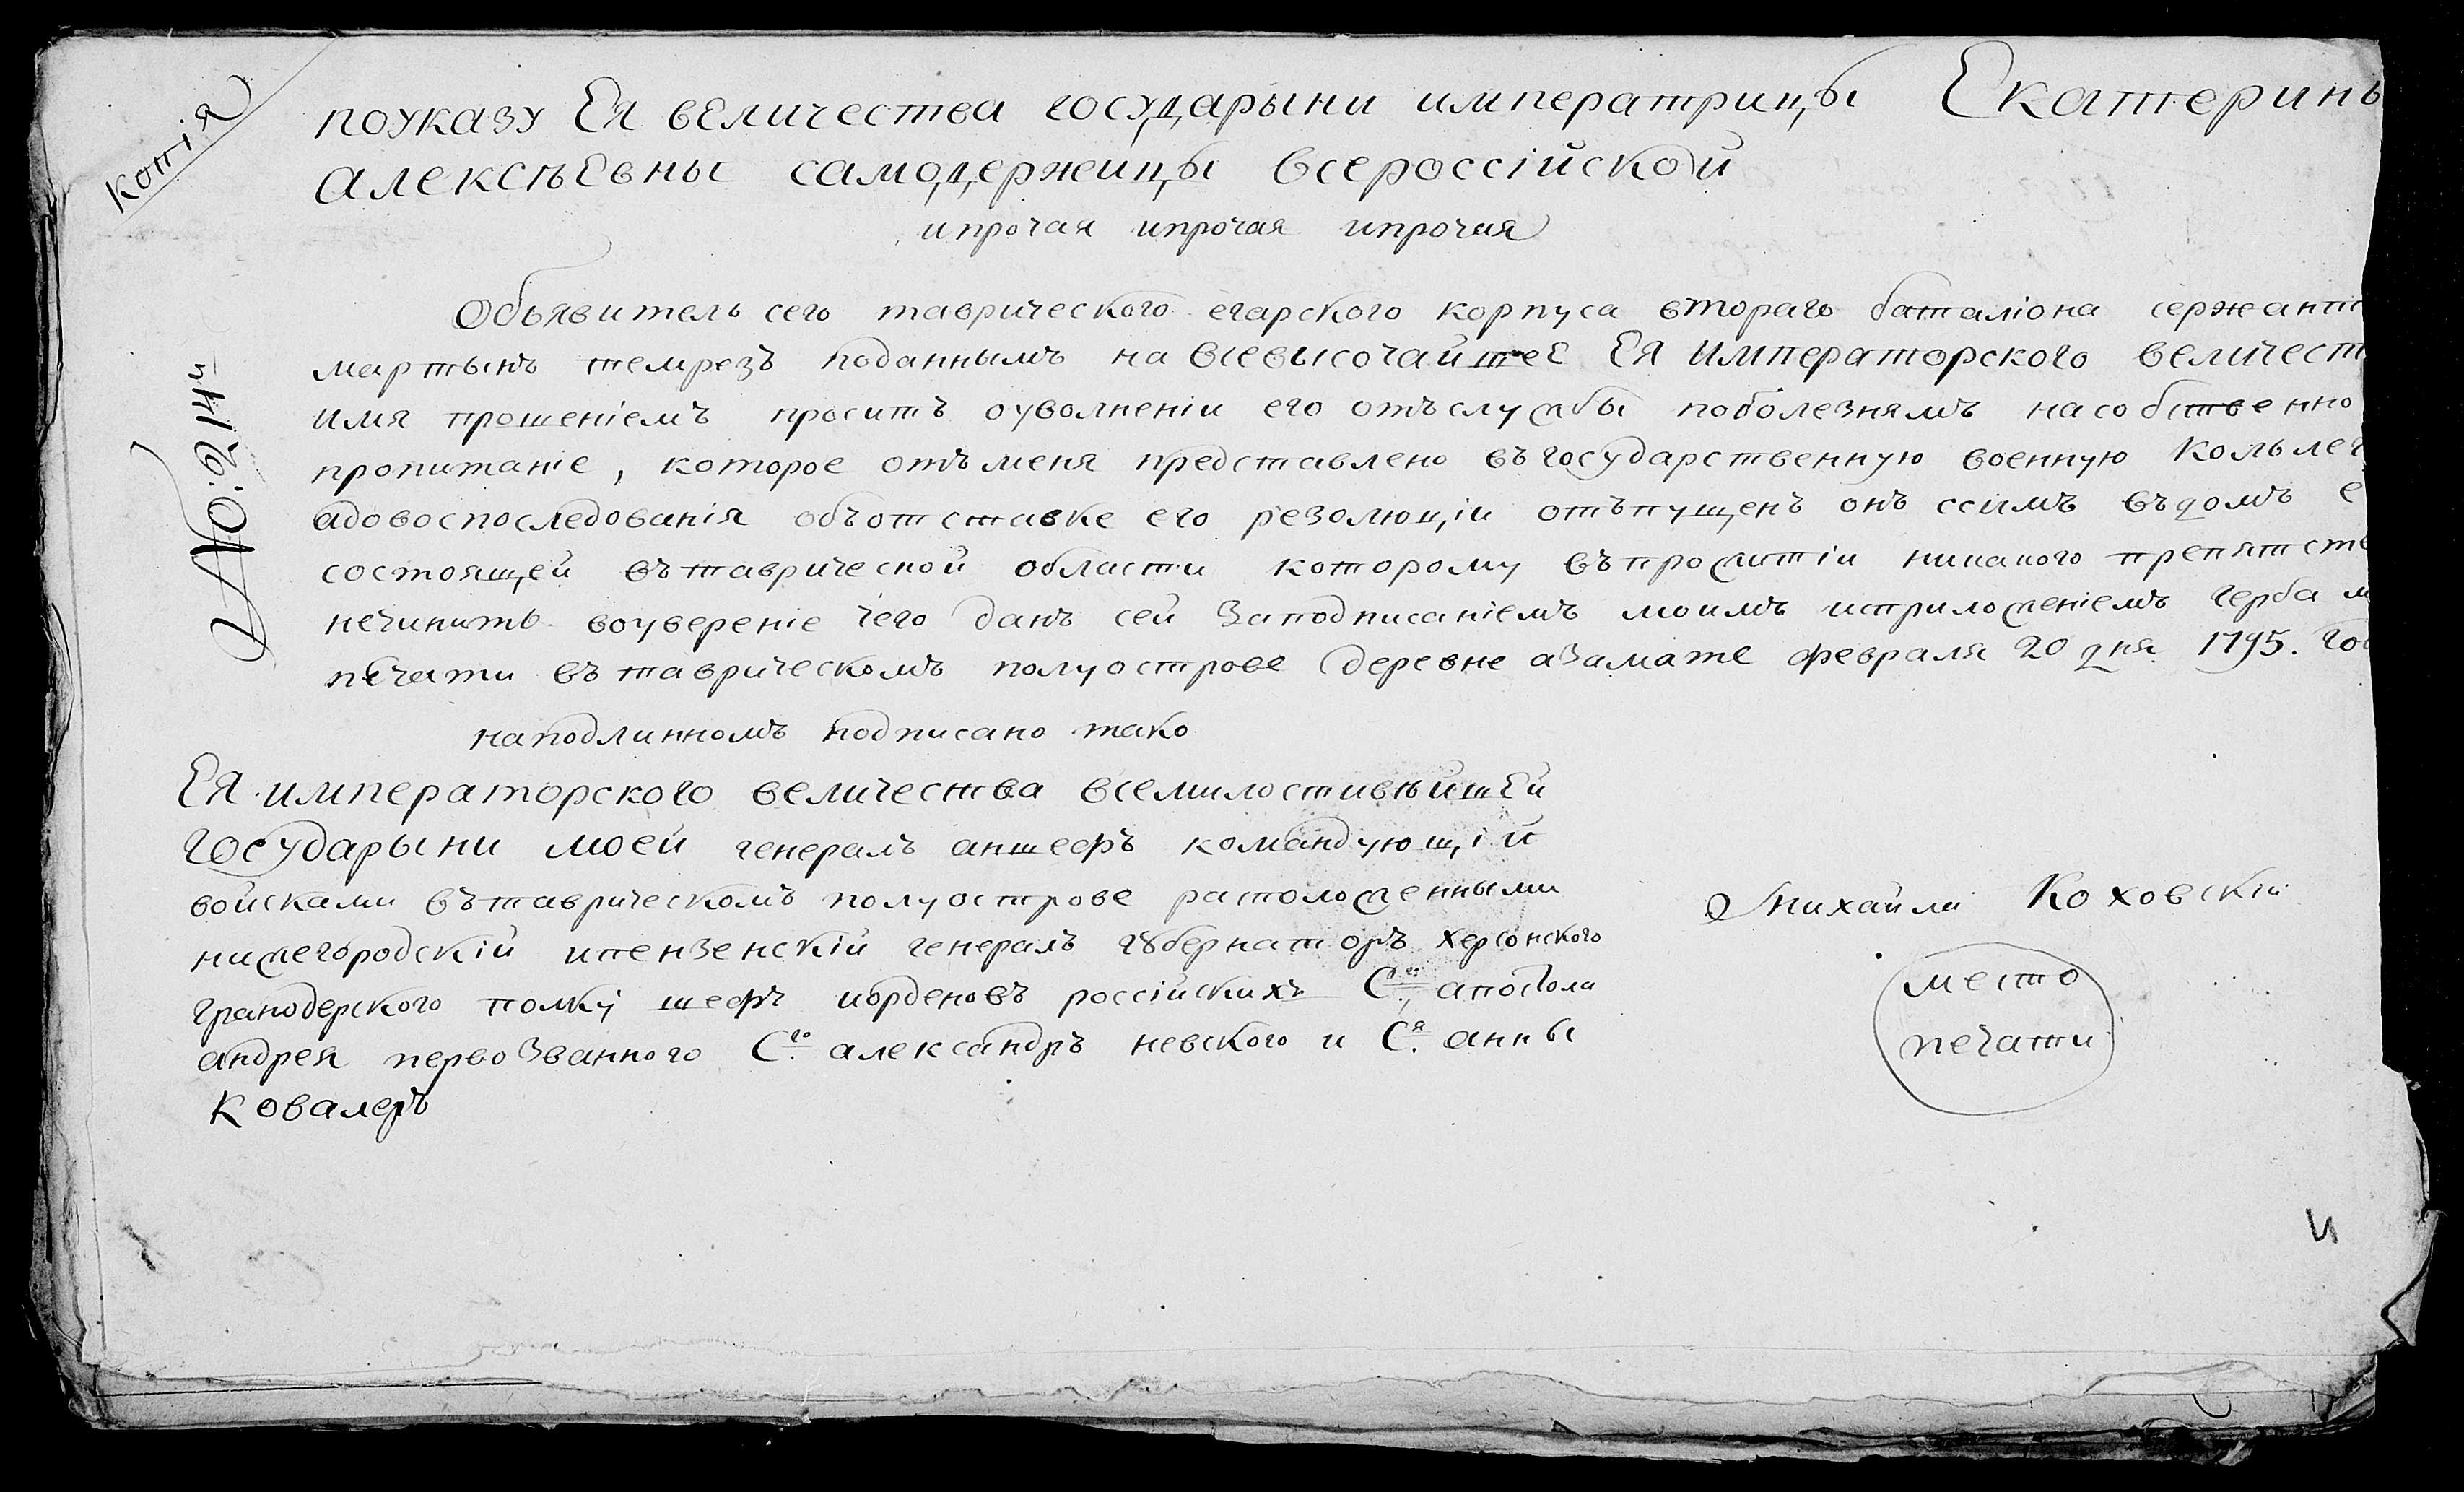 копія
поуказу Ея величества государыни императрицы Екатерины
алексѣевны самодержицы всероссійской
ипрочая ипрочая ипрочая
Объявитель сего таврического егарского корпуса втораго баталіона сержантъ
мартынъ темрезъ поданнымъ на всевысочайшее Ея Императорского величест
имя прошеніемъ проситъ оуволненіи его отъслужбы поболезнямъ насобственно
пропитаніе, которое отъменя представлено въгосударственную военную Кольлег
адовоспоследованія объотставке его резолюціи отъпущенъ онъ ссимъ въдомъ е
состоящей вътаврической области которому въпрожитіи никакого препятств
нечинить воуверение чего данъ сей Заподписаніемъ моимъ иприложеніемъ герба м
печати въ таврическомъ полуострове деревне аЗамате февраля 20 дня 1795. го
наподлинномъ подписано тако
Ея императорского величества всемилостивѣйшей
государыни моей генералъ аншефъ командующій
войсками въ таврическомъ полуострове расположенными
нижегородскій ипензенскій генералъ губернаторъ херсонского
гранодерского полку шефъ иорденовъ россійскихъ С.го апостола
андрея первоЗванного С.го александръ невского и С.я анны
Ковалеръ
Михайла Коховскій
место
печати